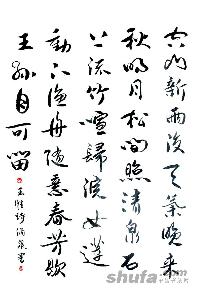 空山新雨後天氣晚來
秋明月松間照清泉石
上流竹喧歸浣女蓮
動下漁舟隨意春芳歇
王孫自可留
王維詩
shufa.com